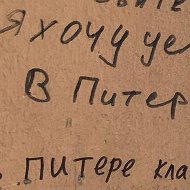 Я хочу уе
В Питер
Питере кла